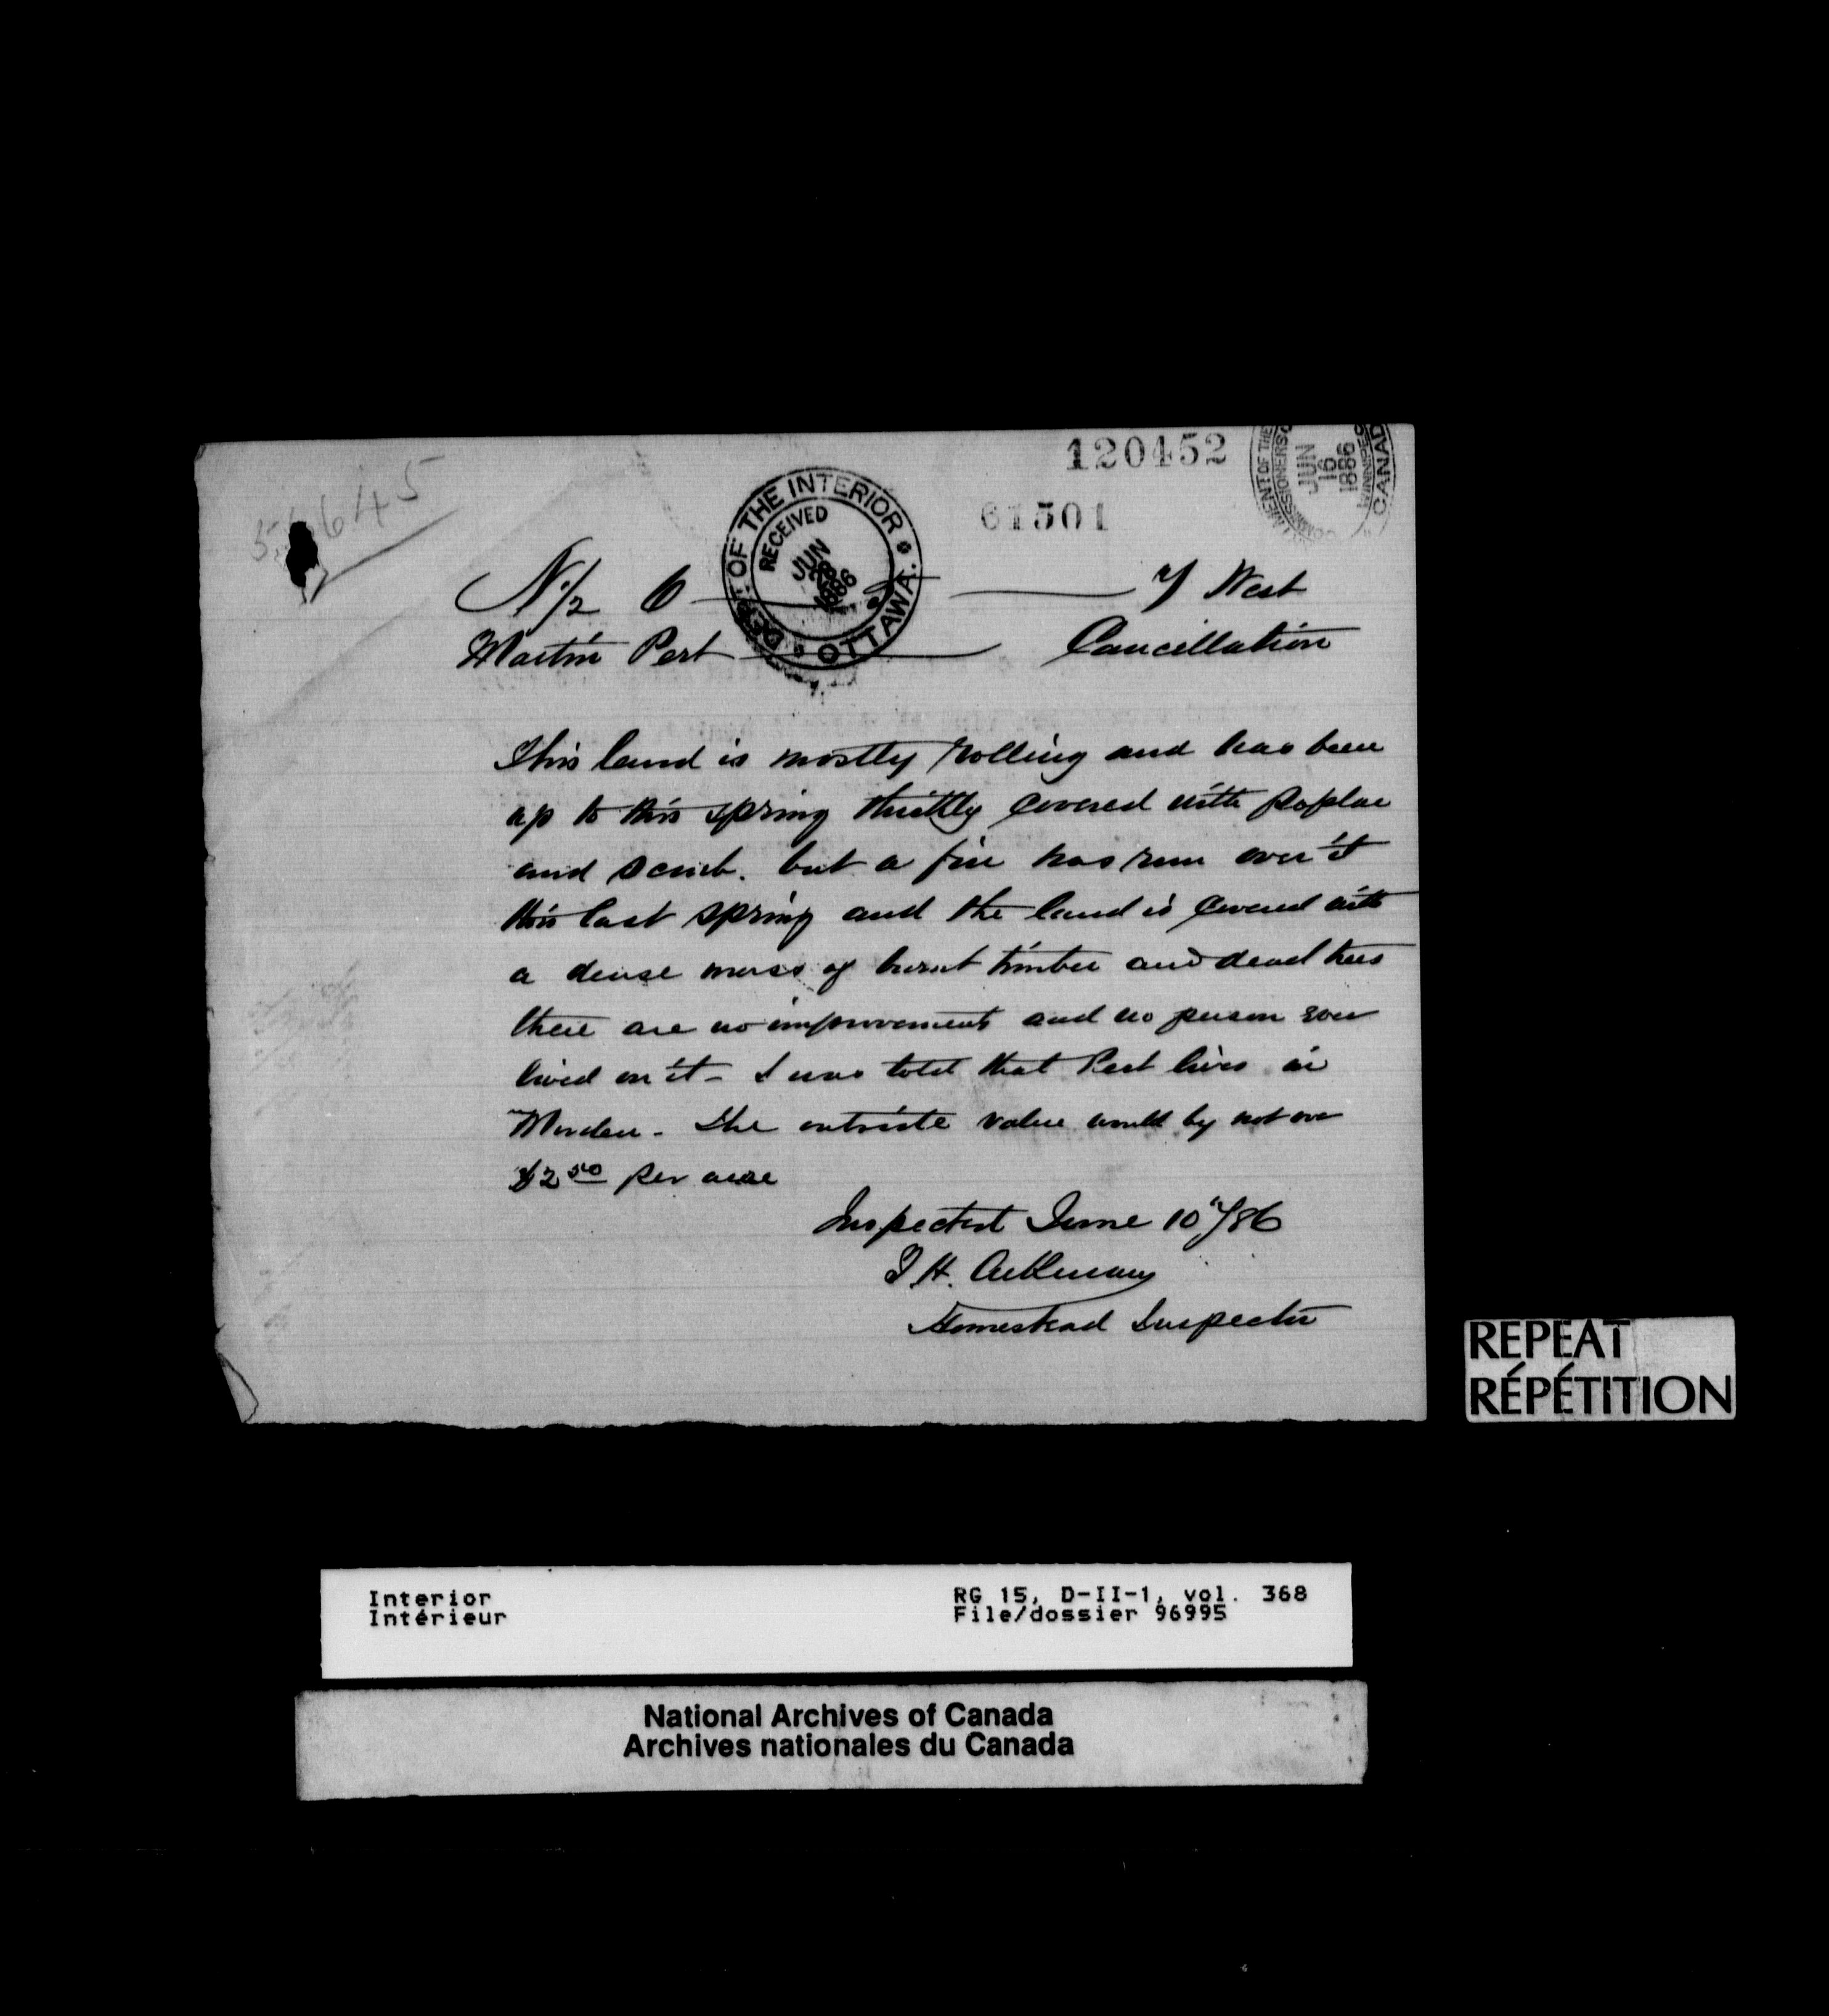 120452
61501
DEP. OF THE INTERIOR
RECEIVED
JUN
28
1886
OTTAWA.
JUN
16
1886
WINNIPEG
CANADA
N ½ 6 — 7 West
Martin Pert — Cancillation
This land is mostly rolling and has been
up to this spring thickly covered with poplar
and scrub. but a fire has run over it
this last spring and the land is covered with
a dense mass of burnt timber and dead trees
there are no improvements and no person ever
lived on it - I was told that Pert lives in
Morden - The outside value would by not over
$2 50 per acre
Inspected June 10"/86
Homestead Inspector
REPEAT
RÉPÉTITION
Interior RG 15, D-II-1, vol. 368
Intérieur File/dossier 96995
National Archives of Canada
Archives nationales du Canada